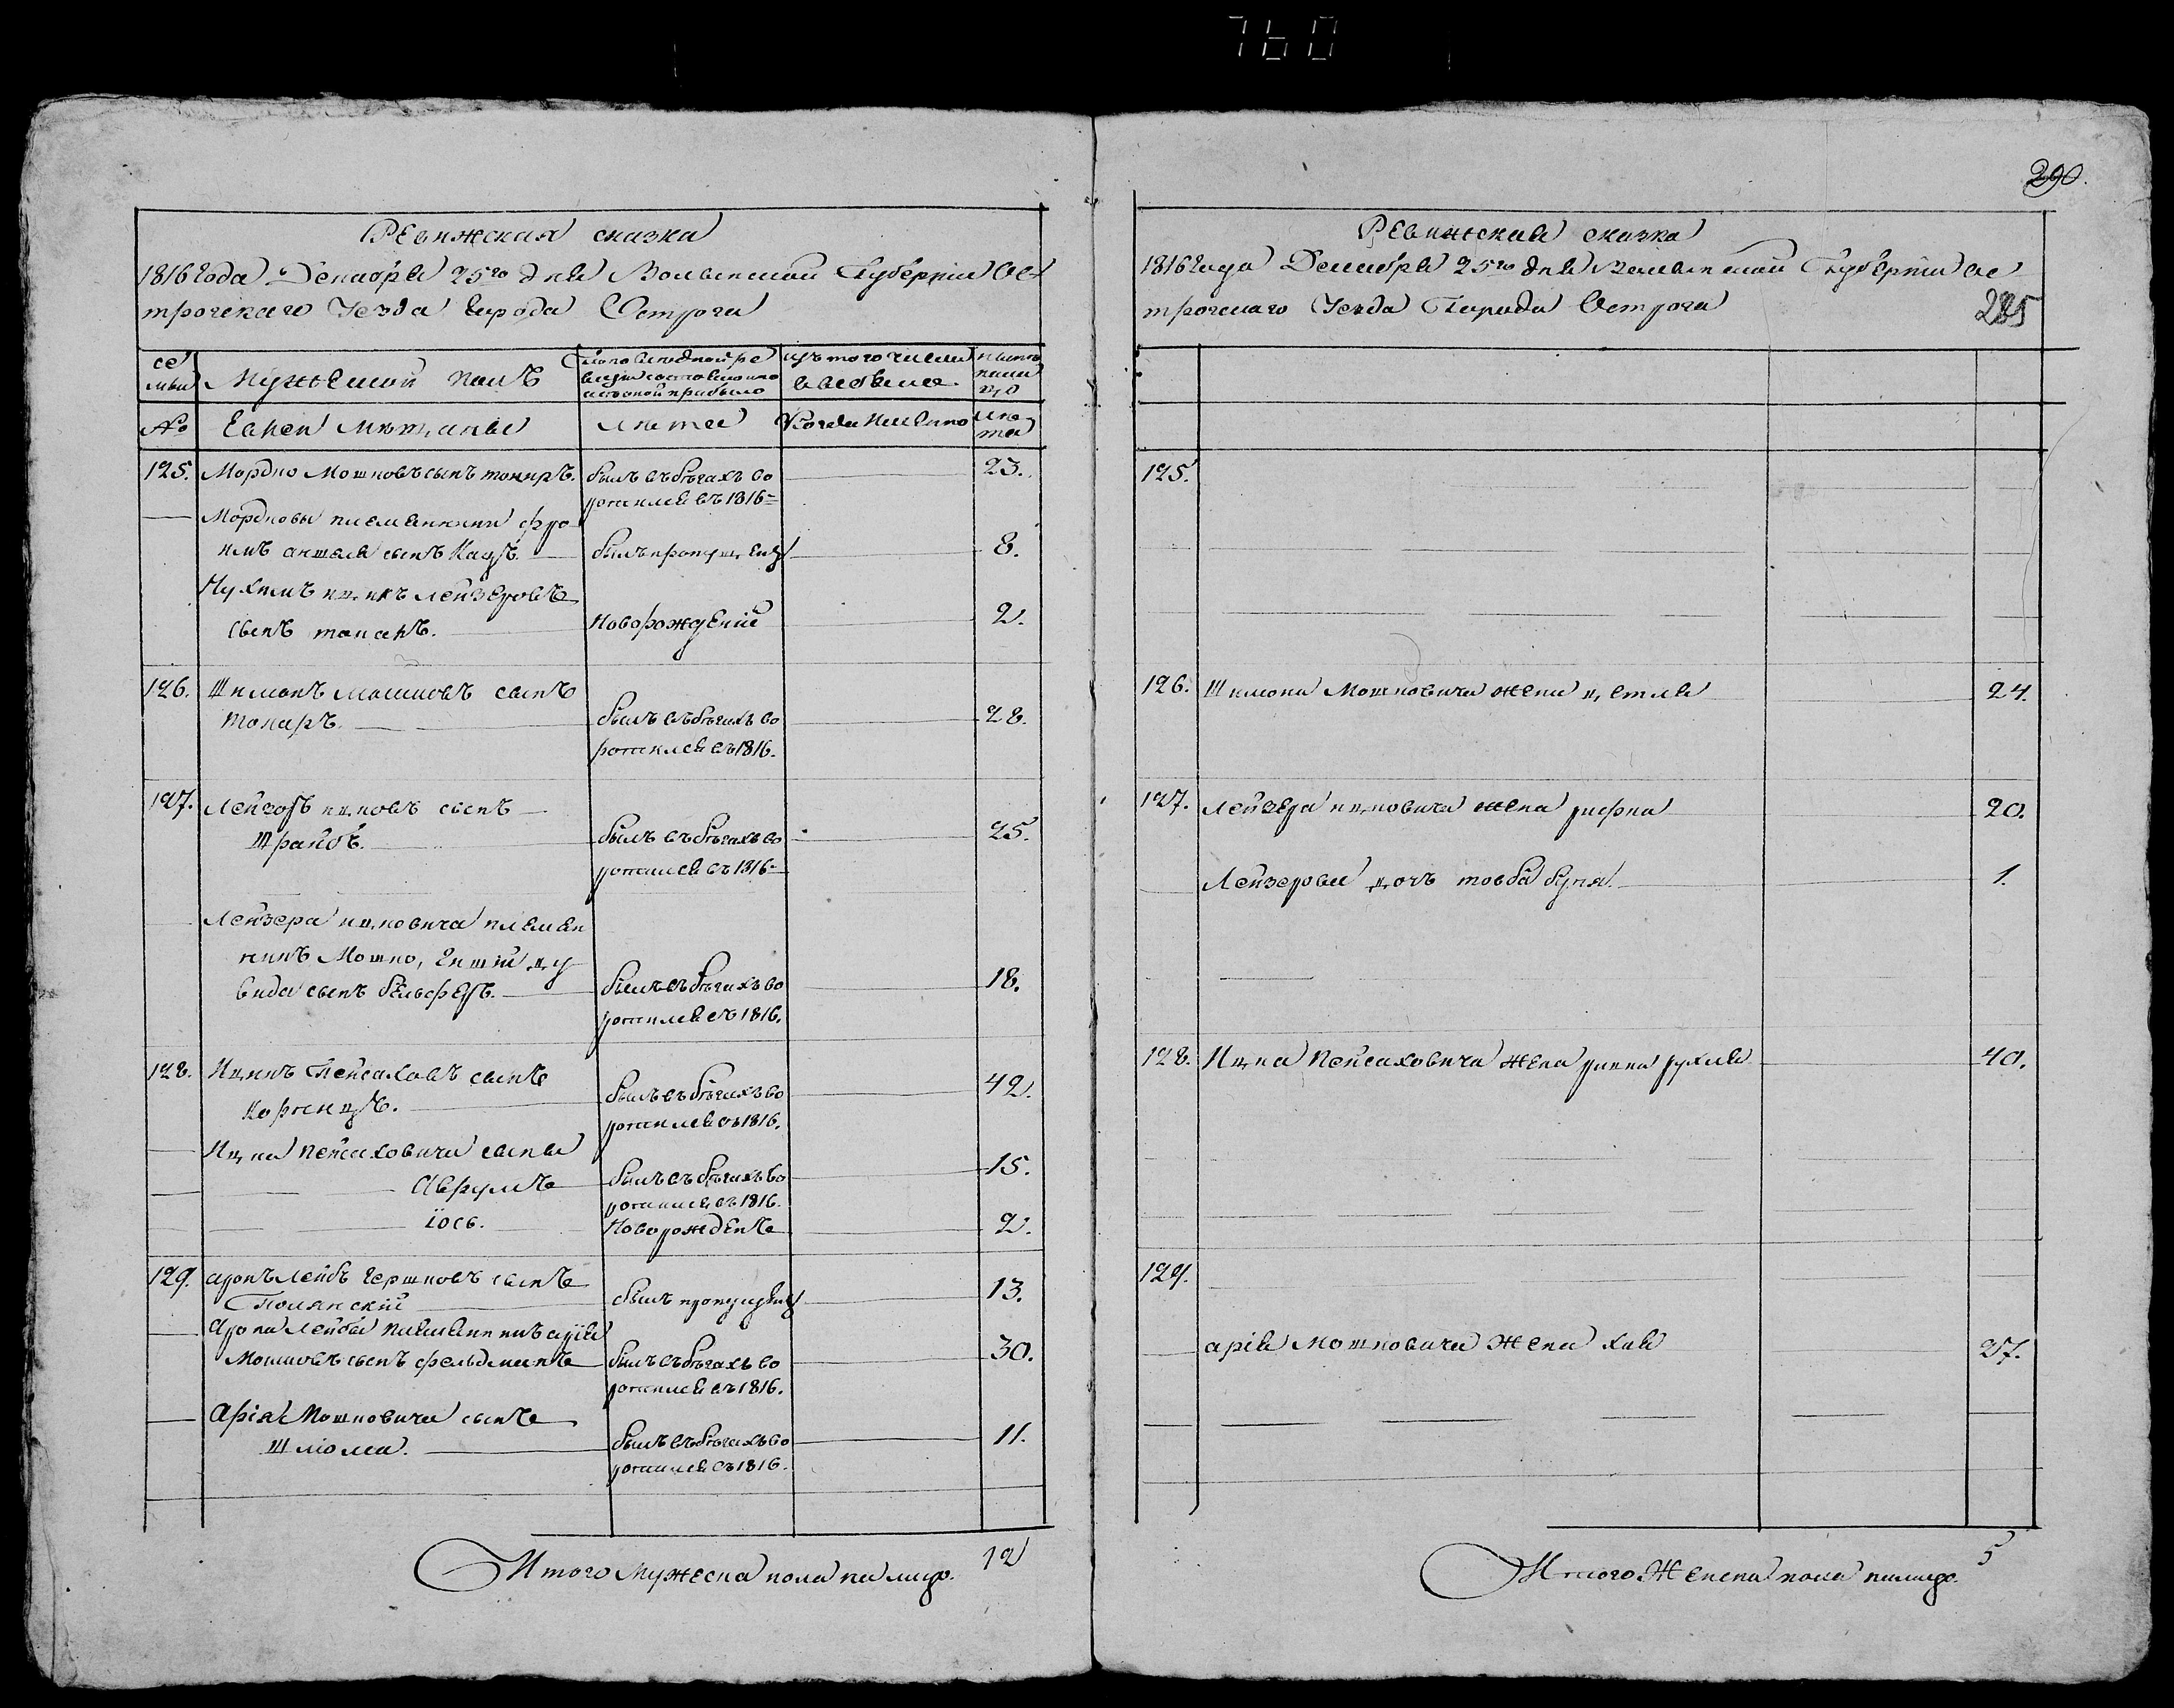 760
Ревижская сказка
1816 Года Декабря 25го дня Волынской Губернїи Ос
трогскаго Уезда города Острога
се
мьи
Мужеской полъ
по последной ре
изъ того числа
выбыло
ныне
налицо
№
Евреи мъщаны
лета
Когда имянно
лета
125. Мордко Мошковъ сынъ токиръ. былъ въ бѣгахъ во 23.
ротился въ 1816
Мордковы племянники фро
имъ аншеля сынъ Кацъ. былъ пропущенъ 8.
Нухимъ ицикъ Лейзеровъ
сынъ 2.
новорожденїй
126. Шимонъ Мошковъ сынъ
токаръ. былъ въ бѣгахъ во 28.
ротился въ 1816.
127. Лейзоръ ицковъ сынъ
Шрайбъ. былъ въ бѣгахъ во 25.
ротился въ 1816
Лейзера ицковича племян
никъ Мошко, ду
вида сынъ былъ въ бѣгахъ во 18.
ротился въ 1816.
128. Ицикъ Пейсаховъ сынъ
Коренцъ. былъ въ бѣгахъ во 42.
ротился въ 1816.
Ицка Пейсаховича сыны
Аврумъ былъ въ бѣгахъ во 15.
ротился въ 1816.
їосъ. Новорожденъ 2.
129. аронъ Лейбъ Гершковъ сынъ
Полянскїй былъ пропущенъ 13.
Арона Лейбы племянникъ арїя
Мошковъ сынъ фельдманъ былъ въ бѣгахъ во 30.
ротился въ 1816.
Арїя Мошковича сынъ
Шлїома. былъ въ бѣгахъ во 11.
ротился въ 1816.
Итого Мужеска пола на лицо. 12
290.
Ревижская сказка
1816 Года Декабря 25го дня Волынской Губернїи Ос
трогскаго Уезда Города Острога
285
125.
126. Шимона Мошковича жена цетля 24.
127. Лейзера ицковича жена рифка 20.
Лейзеровы дочъ товба буня. 1.
128. Ицка Пейсаховича жена рухля 40.
129.
арїя Мошковича Жена хая 27.
Итого Женска пола налицо. 5